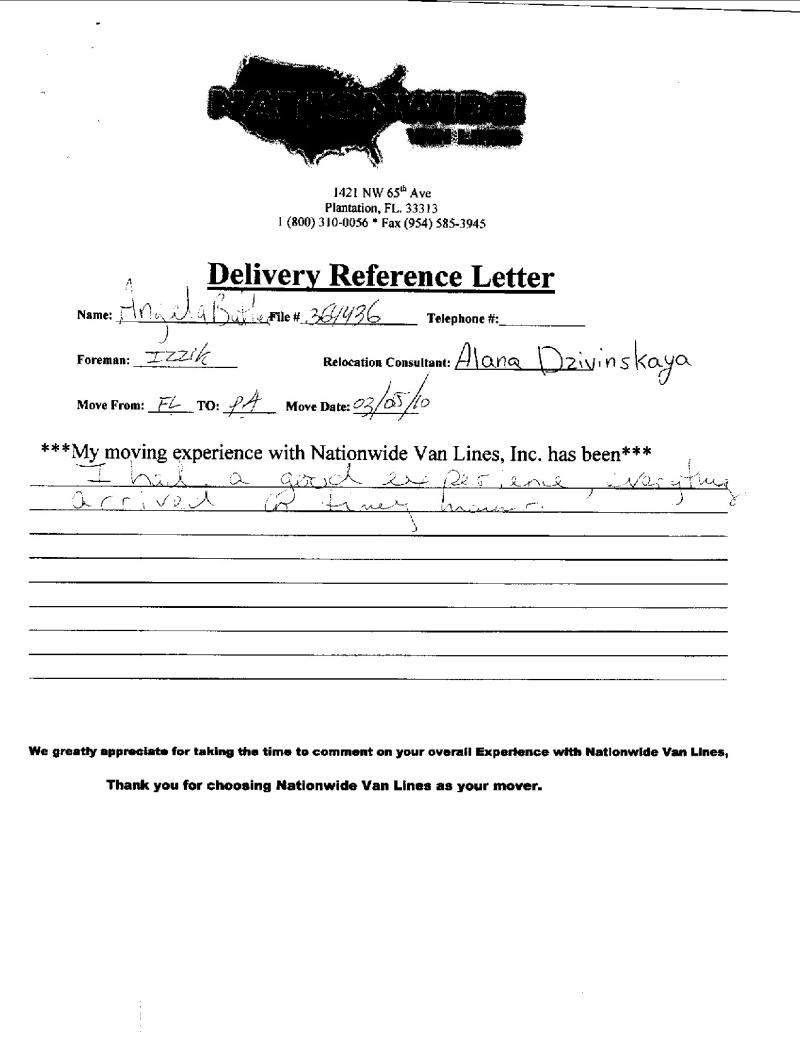 NATIONWIDE
VAN LINES
1421 NW 65th Ave
Plantation, FL. 33313
1 (800) 310-0056 * Fax (954) 585-3945
Delivery Reference Letter
Name: Angela Butler File # 361436 Telephone #:
Foreman: Izzik Relocation Consultant: Alana Dzivinskaya
Move From: FL TO: PA Move Date: 03/05/10
***My moving experience with Nationwide Van Lines, Inc. has been***
I had a good experience, everything
arrived timey
We greatly appreciate for taking the time to comment on your overall Experience with Nationwide Van Lines,
Thank you for choosing Nationwide Van Lines as your mover.